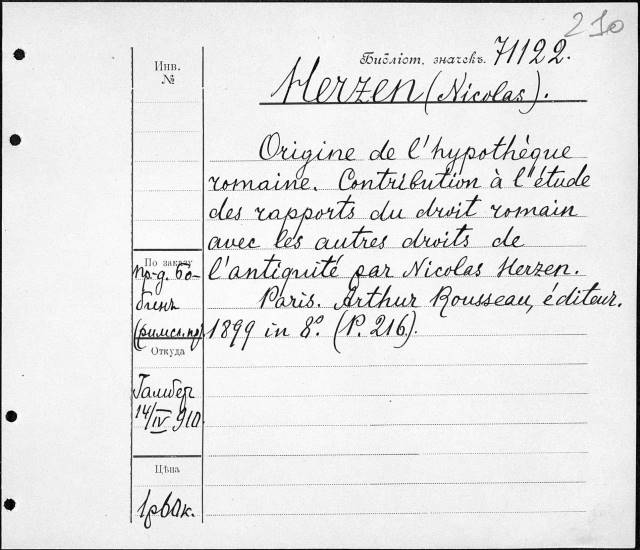 210
Библіот. значекъ. 71122.
Инв.
№
Herzen (Nicolas).
Origine de l'hypothèque
romaine. Contribution à l'étude
des rapports du droit romain
avec les autres droits de
l'antiquité par Nicolas Herzen.
Paris. Arthur Rousseau, éditeur.
1899 in 8°. (P. 216).
По заказу
пр-д. Бо-
бинъ
(римск. пр)
Откуда
14/IV 910
Цѣна
1р60к.